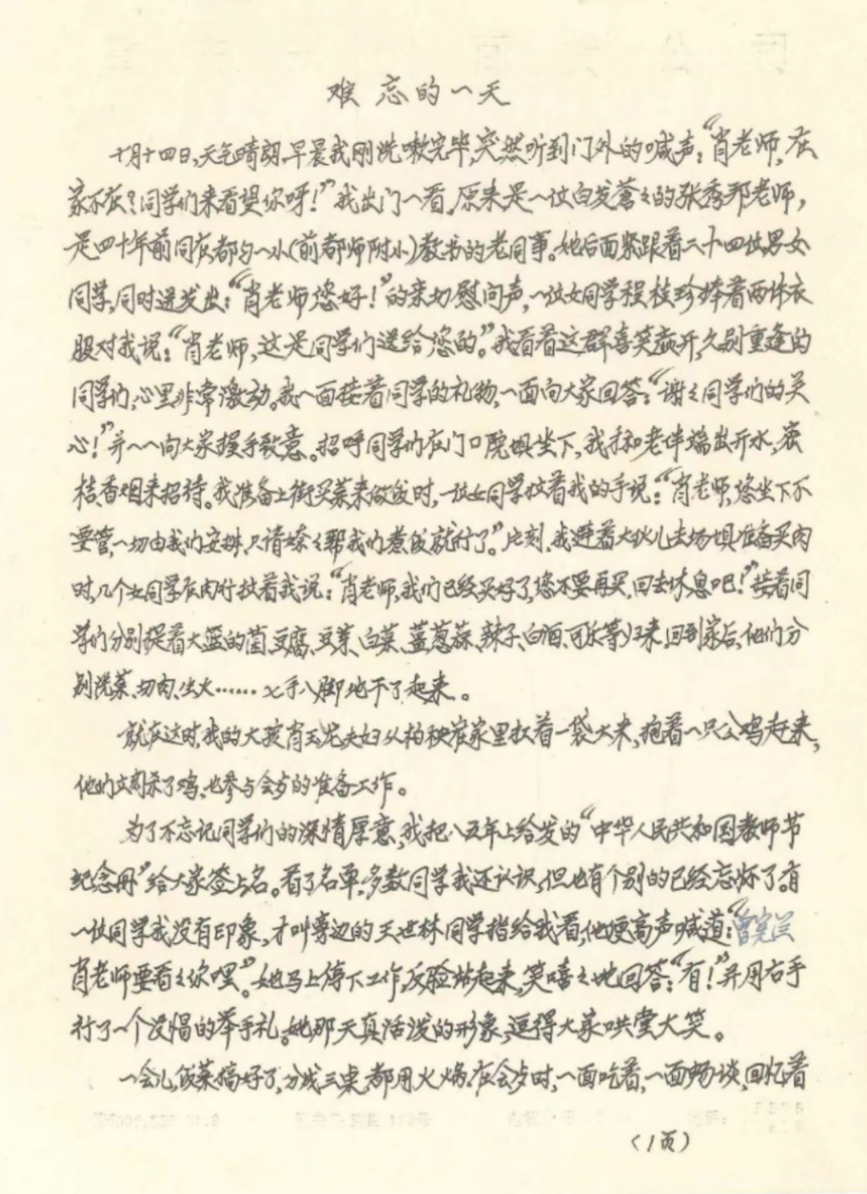 难忘的一天
十月十四日,天气晴朗.早晨我刚洗嗽完毕,突然听到门外的喊声:“肖老师,在
家不在?同学们来看望你呀!”我出门一看,原来是一位白发苍々的张秀邦老师,
是四十年前同在都匀一小(前都师附小)教书的老同事。她后面紧跟着二十四位男女
同学,同时迸发出:“肖老师您好!”的亲切慰问声,一位女同学程桂珍捧着两件衣
服对我说:“肖老师,这是同学们送给您的”。我看着这群喜笑颜开,久别重逢的
同学们,心里非常激动。我一面接着同学的礼物,一面向大家回答:“谢々同学们的关
心!”并一一向大家握手致意。招呼同学们在门口院坝坐下,我和老伴端出开水,蜜
桔香烟来招待。我准备上街买菜来做饭时,一位女同学拉着我的手说:“肖老师,您坐下不
要管,一切由我们安排,只请嬢々帮我们煮饭就行了”。此刻,我避着大伙儿去场坝准备买肉
时,几个女同学在肉行拉着我说:“肖老师,我们已经买好了,您不要再买,回去休息吧!”接着同
学们分别提着大篮的菌、豆腐、豆芽、白菜、姜葱蒜、辣子、白酒、可乐等归来,回到家后,他们分
别洗菜、切肉、生火……七手八脚地干了起来。
就在这时,我的大孩肖玉龙夫妇从柏秧崔家里扛着一袋大米,抱着一只公鸡赶来,
他们立刻杀了鸡、也参与会歺的准备工作。
为了不忘记同学们的深情厚意,我把八五年上给发的“中华人民共和国教师节
纪念册”给大家签上名。看了名单,多数同学我还认识,但也有个别的已经忘怀了。有
一位同学我没有印象,才叫旁边的王世林同学指给我看,他便高声喊道:“
肖老师要看々你嘿”。她马上停下工作,反脸站起来,笑嘻々地回答:“有!”并用右手
行了一个没帽的举手礼。她那天真活泼的形象,逗得大家哄堂大笑。
一会儿,饭菜搞好了,分成三桌,都用火锅,在会歺时,一面吃着,一面畅谈,回忆着
(1页)